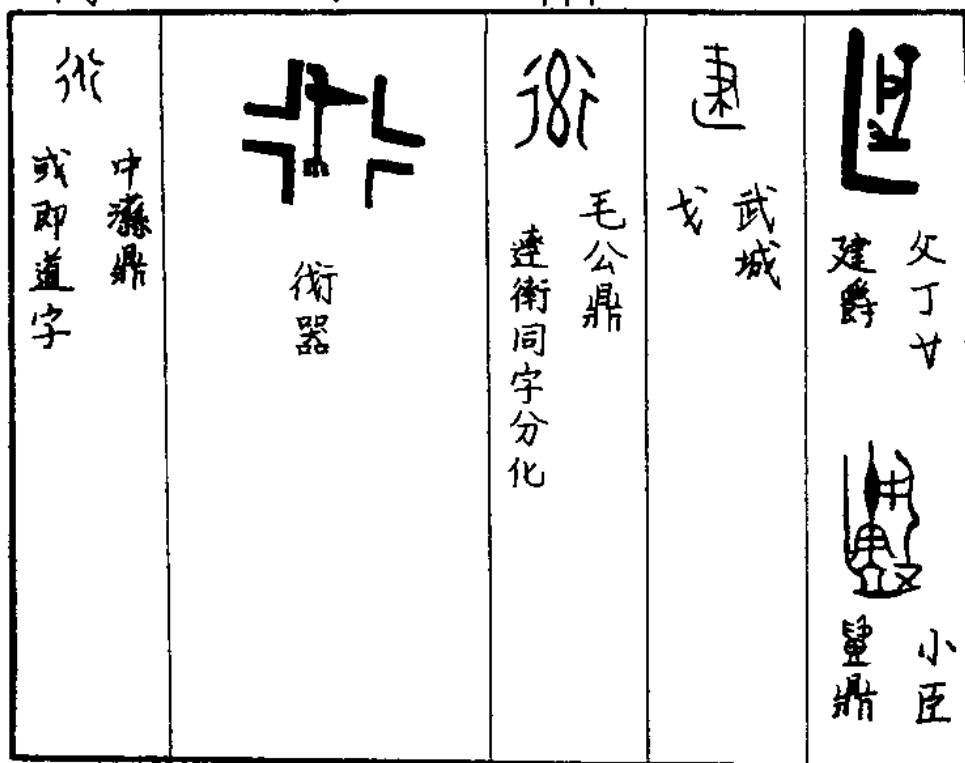 父丁
建爵
小臣
鼎
武城
戈
毛公鼎
衛同字分化
器
中鼎
或即道字